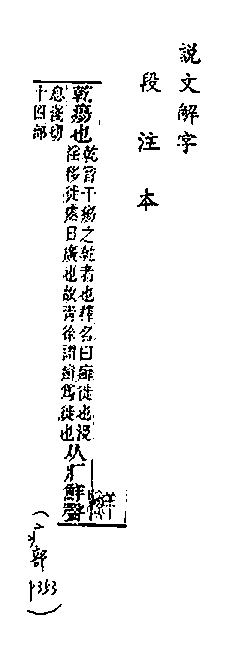 説文解字
段注本
乾瘍也
乾音干瘍之乾者也釋名曰癬徙也浸
淫移徙處日廣也故青徐謂癬爲徙也
从疒鮮聲
息淺切
十四部
(疒部 P353)